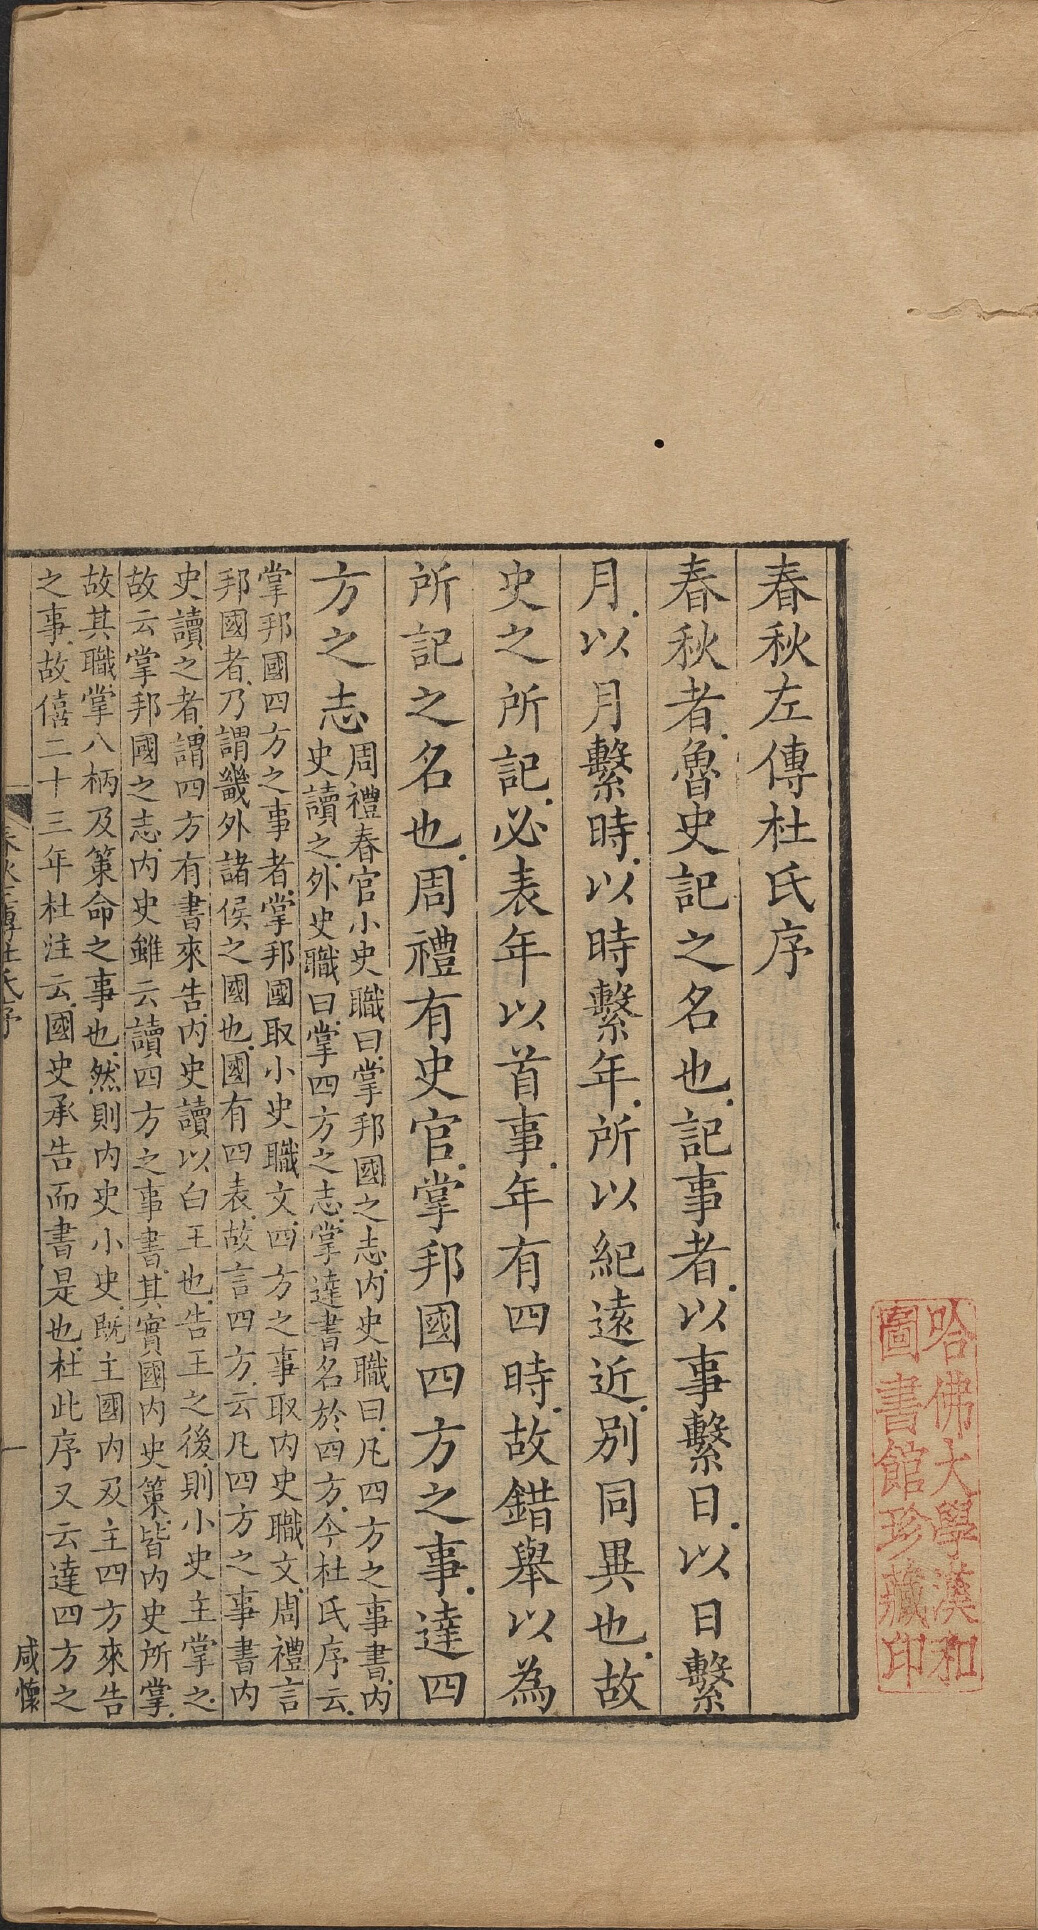 春秋左傳杜氏序
春秋者魯史記之名也記事者以事繫日以日繫
月以月繫時以時繫年所以紀遠近別同異也故
史之所記必表年以首事年有四時故錯舉以為
所記之名也周禮有史官掌邦國四方之事達四
方之志
周禮春官小史職曰掌邦國之志内史職曰凡四方之事書内
史讀之外史職曰掌四方之志掌達書名於四方今杜氏序云
掌邦國四方之事者掌邦國取小史職文四方之事取内史職文周禮言
邦國者乃謂畿外諸侯之國也國有四表故言四方云凡四方之事書内
史讀之者謂四方有書來告内史讀以白王也告王之後則小史主掌之
故云掌邦國之志内史雖云讀四方之事書其實國内史策皆内史所掌
故其職掌八柄及策命之事也然則内史小史既主國内及主四方來告
之事故僖二十三年杜注云國史承告而書是也杜此序又云達四方之
春秋左傳杜氏序
一
咸懷
哈佛大學漢和
圖書館珍藏印